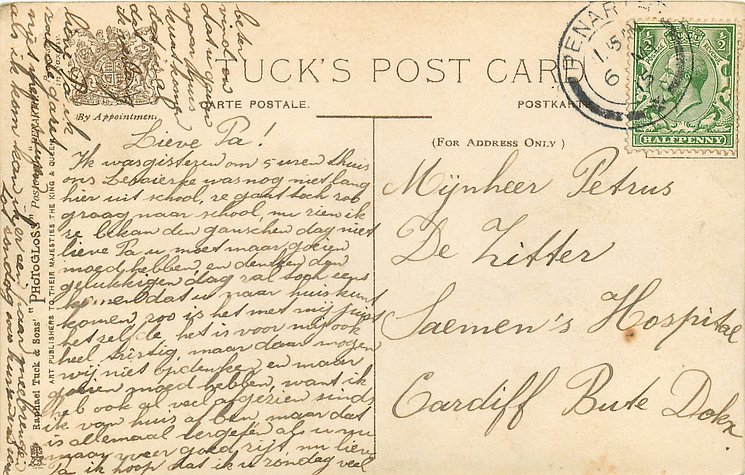 TUCK'S POST CARD
CARTE POSTALE.
POSTKARTE
By Appointment
(For Address Only)
PENARTH
HALFPENNY
Lieve Pa!
Ik was gisteren om 5 uren thuis
ons was nog niet lang
hier uit school, ze gaat toch zoo
graag naar school, nu zien ik
ze bekan den ganschen dag niet
lieve Pa u moet maar goeien
moed hebben, en denken den
gelukkigen dag zal toch eens
komen dat u naar huis kunt
komen, zoo is het met mij juist
het zelfde het is voor mij ook
heel triestig, maar daar mogen
wij niet op denken en maar
goeien moed hebben, want ik
heb ook al veel afgezien sinds
ik van huis af ben, maar dat
is allemaal vergeten als u nu
maar weer goed zijt, nu lieve
Pa ik hoop dat ik u zondag veel
beter
vinden
dat u gauw
naar huis
kunt komen
dat is al
Mijnheer Petrus
De Zitter
Saemen's Hospital
Cardiff Bute Dokx
Raphael Tuck & Sons' "PHOTOGLOSS" Postcard
ART PUBLISHERS TO THEIR MAJESTIES THE KING & QUEEN
als ik kom kan ik er een paar meebrengen